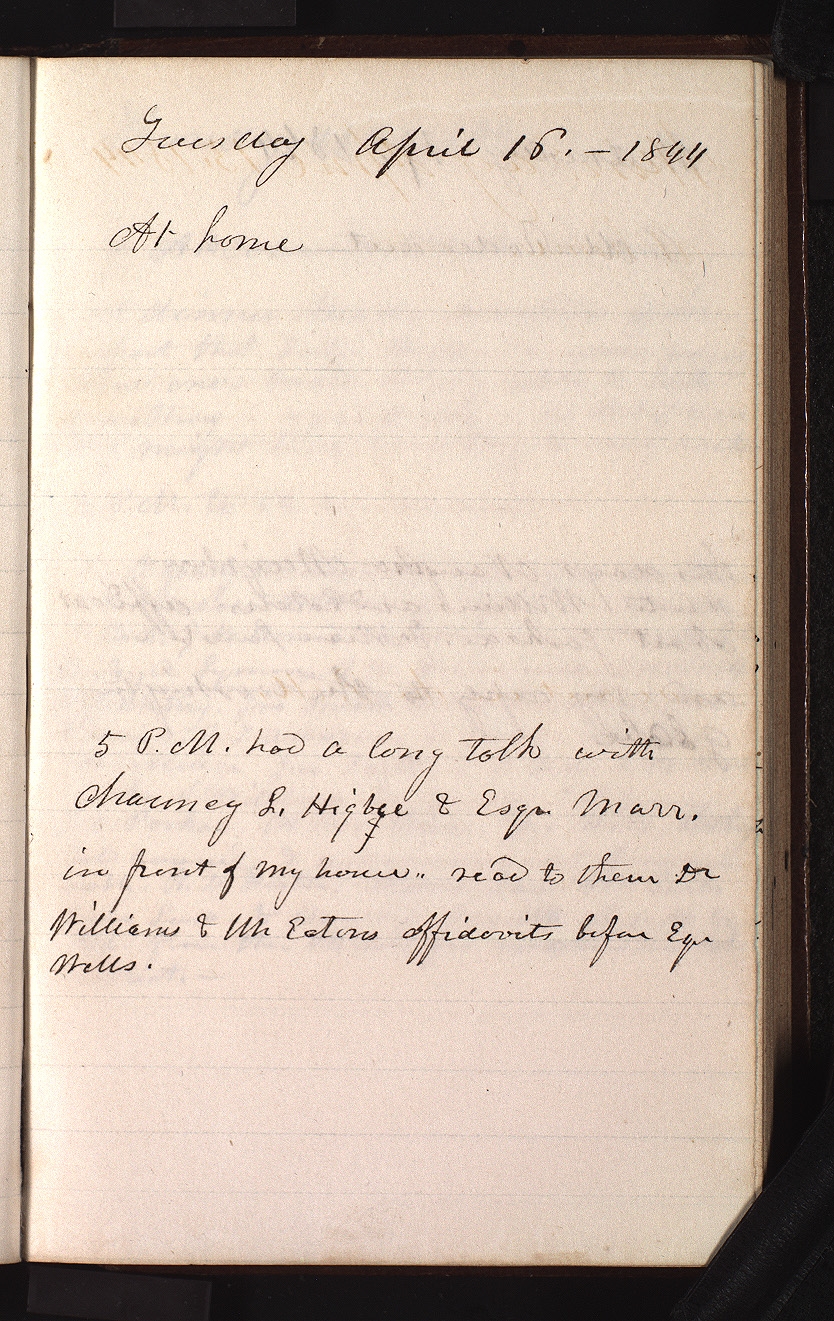 Tuesday April 16. — 1844
At home
5 P.M. had a long talk with
Chauncy L. Higbee & Esqr Marr.
in front of my house.. read to them Dr
Williams & Mr Eatons affidavits before Eqr
Wells.